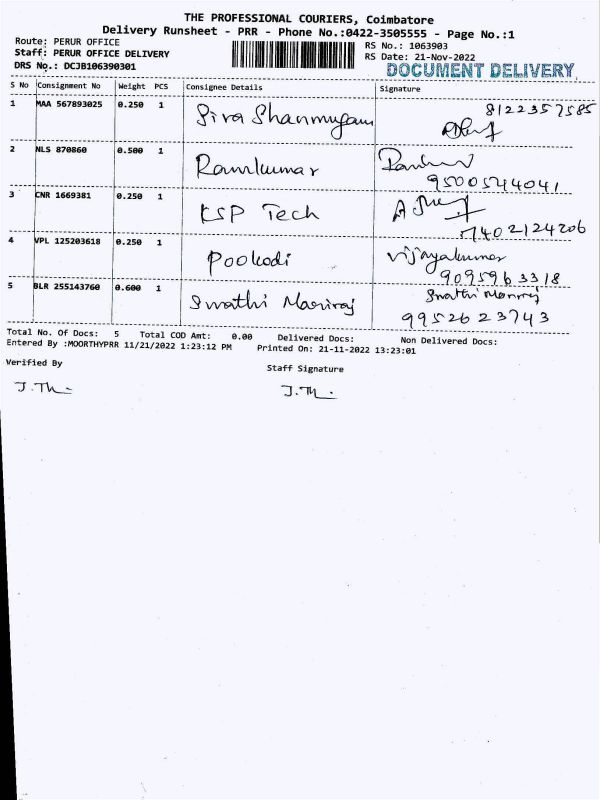 THE PROFESSIONAL COURIERS, Coimbatore
Delivery Runsheet - PRR - Phone No.:0422-3505555 - Page No.:1
Route: PERUR OFFICE
RS No.: 1063903
Staff: PERUR OFFICE DELIVERY
RS Date: 21-Nov-2022
DRS No.: DCJB106390301
DOCUMENT DELIVERY
S No Consignment No Weight PCS Consignee Details Signature
1 MAA 567893025 0.250 1 Siva Shanmugam 8122357585
2 NLS 870860 0.500 1 Ramkumar
9500544041
3 CNR 1669381 0.250 1 KSP Tech
7402124206
4 VPL 125203618 0.250 1 Pookodi Vijayakumar
9095963318
5 BLR 255143760 0.600 1 Swathi Mariraj Swathi Mariraj
9952623743
Total No. Of Docs: 5 Total COD Amt: 0.00 Delivered Docs: Non Delivered Docs:
Entered By :MOORTHYPRR 11/21/2022 1:23:12 PM Printed On: 21-11-2022 13:23:01
Verified By
Staff Signature